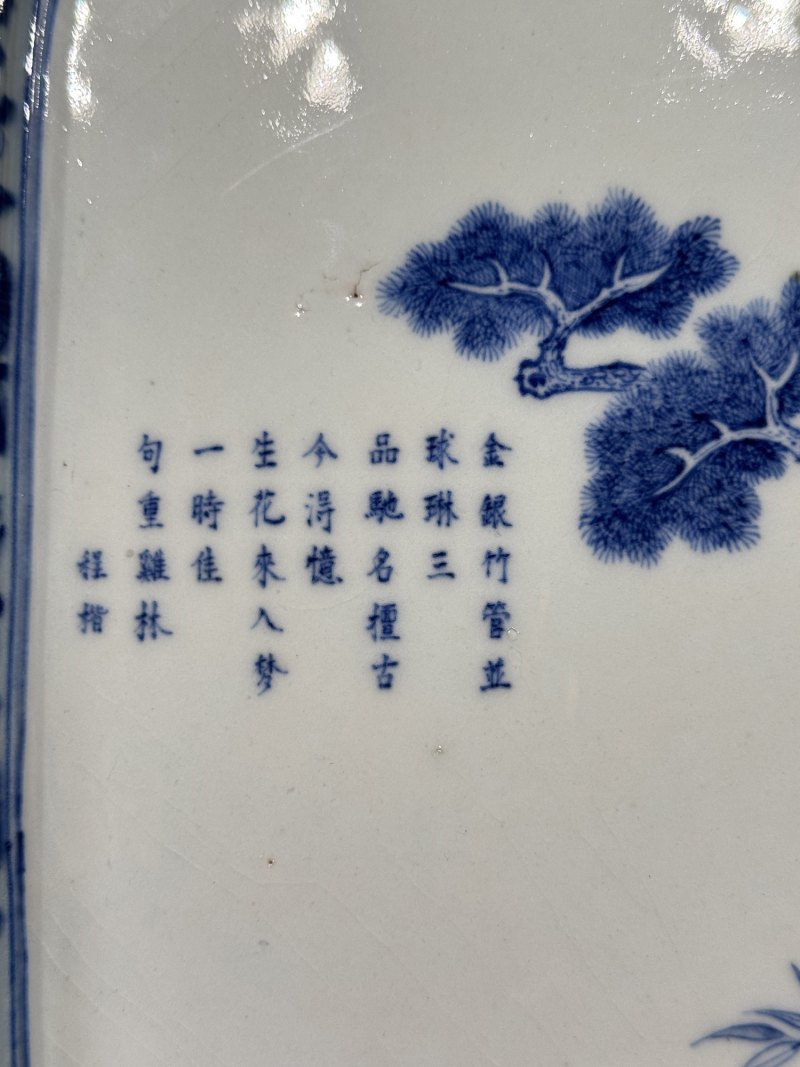 金銀竹管並
球琳三
品馳名擅古
今得憶
生花來入梦
一時佳
句重雞林
程楷